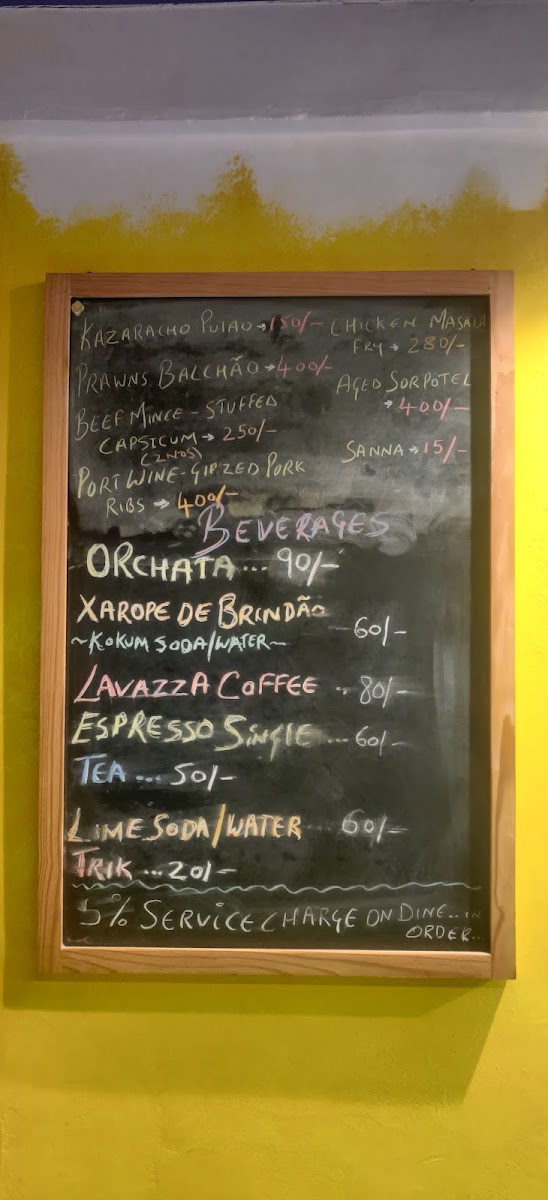 KAZARACHO PULAO → 150/-
PRAWNS BALCHÃO → 400/-
BEEF MINCE - STUFFED
CAPSICUM → 250/-
(2NOS)
PORT WINE - GLAZED PORK
RIBS → 400/-
CHICKEN MASALA
FRY → 280/-
AGED SORPOTEL
→ 400/-
SANNA → 15/-
BEVERAGES
ORCHATA ... 90/-
XAROPE DE BRINDÃO
~KOKUM SODA/WATER~ 60/-
LAVAZZA COFFEE .. 80/-
ESPRESSO SINGLE ... 60/-
TEA ... 50/-
LIME SODA/WATER 60/-
TRIK ... 20/-
5% SERVICE CHARGE ON DINE.. IN
ORDER..